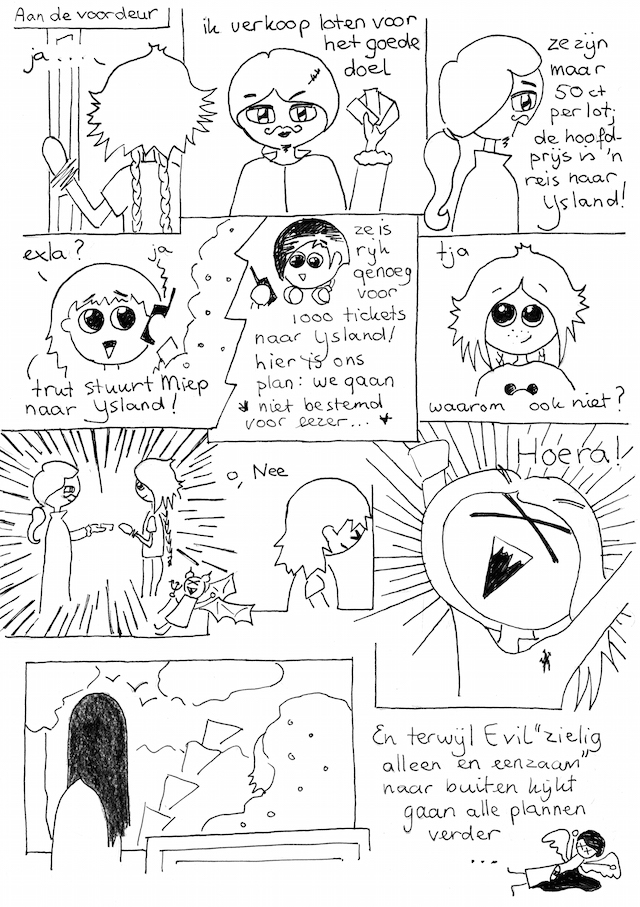 Aan de voordeur
ja....
ik verkoop loten voor
het goede
doel
ze zijn
maar
50 ct
per lot;
de hoofd-
prijs is 'n
reis naar
Ysland!
exla?
ja
trut stuurt Miep
naar Ysland!
ze is
rijk
genoeg
voor
1000 tickets
naar Ysland!
hier is ons
plan: we gaan
niet bestemd
voor eezer...
tja
waarom ook niet?
Nee
Hoera!
En terwijl Evil "zielig
alleen en eenzaam"
naar buiten kijkt
gaan alle plannen
verder
...